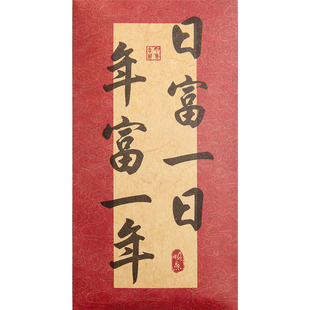 日富一日
年富一年